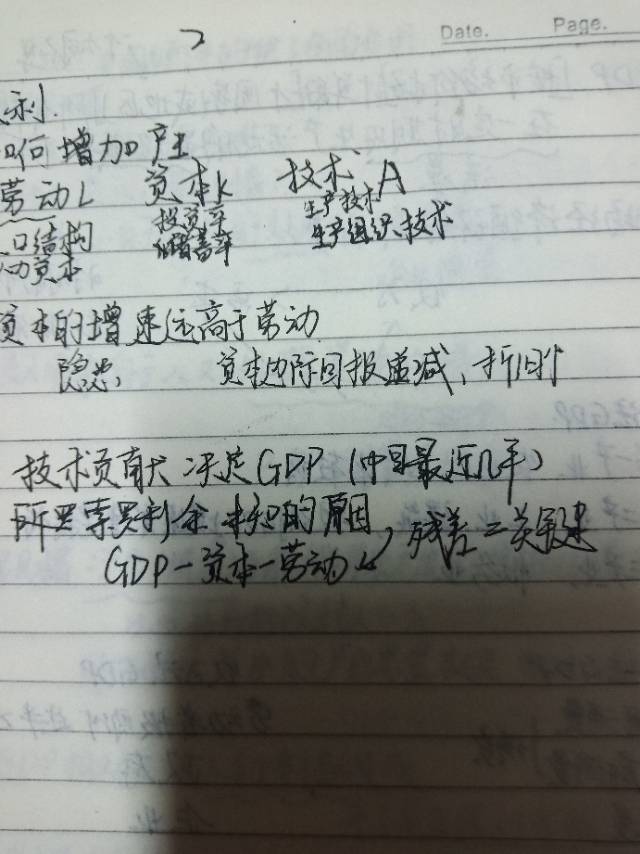 Date. Page.
利.
何增加产
劳动L 资本K 技术A
投资率 生产技术
口结构 储蓄率 生产组织技术
动资本
资本的增速远高于劳动
隐患, 资本边际回报递减, 折旧
技术贡献 决定GDP (中国最近几年)
剩余 未知的原因, 残差=关键
GDP-资本-劳动